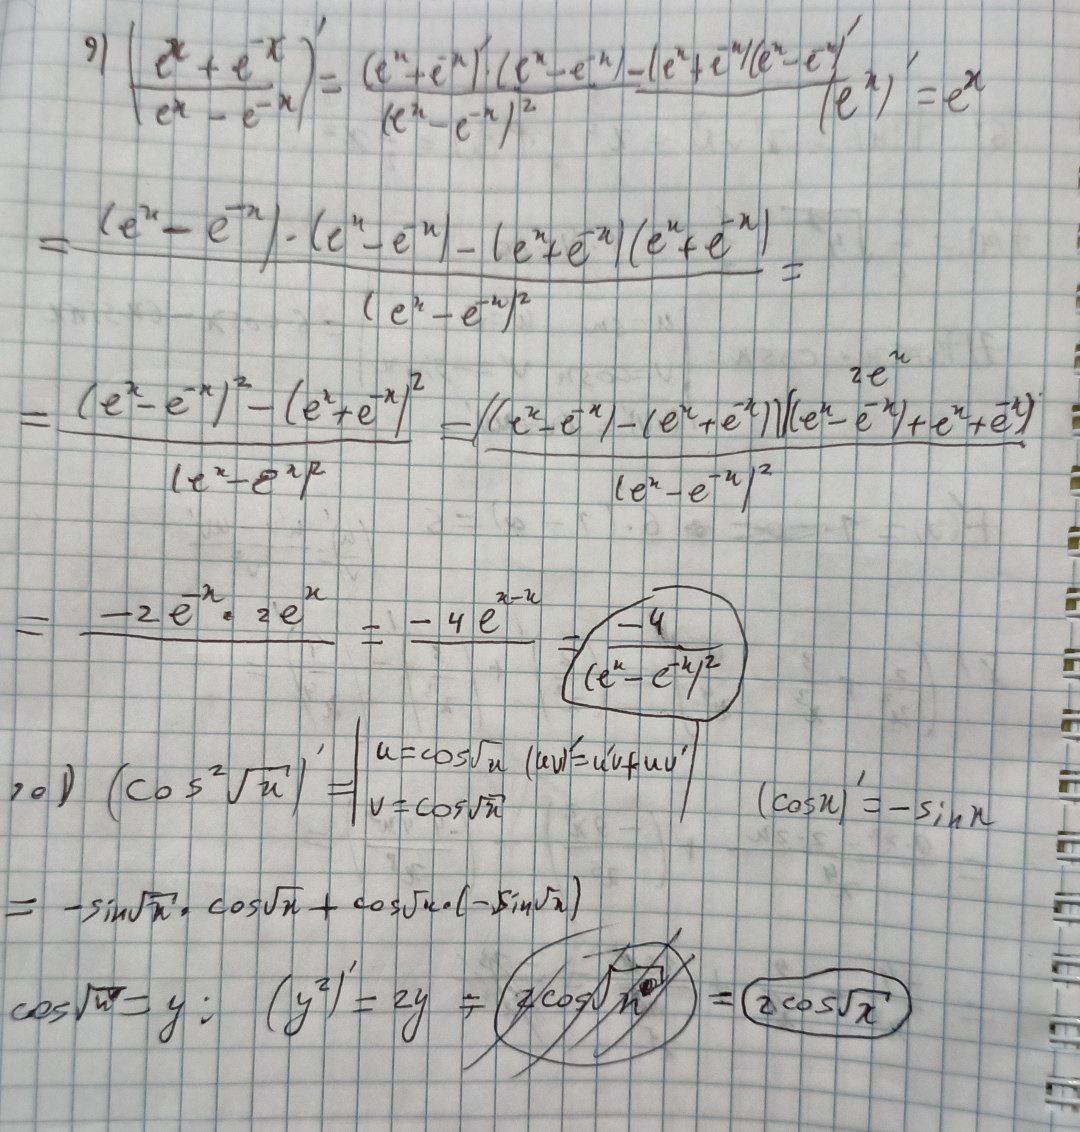 9) ((eˣ + e⁻ˣ)/(eˣ − e⁻ˣ))′ = ((eˣ+e⁻ˣ)′·(eˣ−e⁻ˣ)−(eˣ+e⁻ˣ)(eˣ−e⁻ˣ)′)/(eˣ−e⁻ˣ)² (eˣ)′ = eˣ
= ((eˣ − e⁻ˣ)·(eˣ−e⁻ˣ)−(eˣ+e⁻ˣ)(eˣ+e⁻ˣ))/(eˣ−e⁻ˣ)² =
2eˣ
= ((eˣ−e⁻ˣ)²−(eˣ+e⁻ˣ)²)/(eˣ−eˣ)² = ((eˣ−e⁻ˣ)−(eˣ+e⁻ˣ))((eˣ−e⁻ˣ)+eˣ+e⁻ˣ)/(eˣ−e⁻ˣ)²
= −2e⁻ˣ·2eˣ = −4eˣ⁻ˣ = −4/(eˣ−e⁻ˣ)²
10) (cos²√x)′ = | u=cos√x (uv)′=u′v+uv′ | (cosx)′=−sinx
v=cos√x
= −sin√x·cos√x+cos√x·(−sin√x)
cos√x=y; (y²)′=2y = 2cos√x = 2cos√x